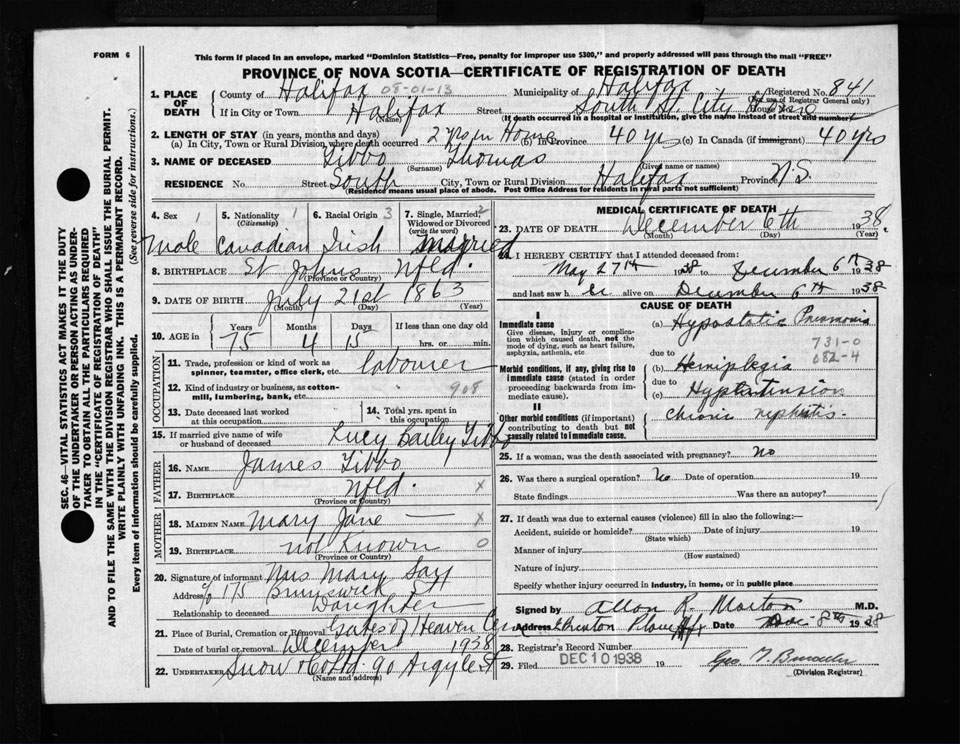 FORM 6
This form if placed in an envelope, marked "Dominion Statistics—Free, penalty for improper use $300," and properly addressed will pass through the mail "FREE"
PROVINCE OF NOVA SCOTIA—CERTIFICATE OF REGISTRATION OF DEATH
1. PLACE OF DEATH
County of Halifax 08-01-13 Municipality of Halifax Registered No. 841
(For use of Registrar General only)
If in City or Town Halifax Street South St. City House
(Name)
(If death occurred in a hospital or institution, give the name instead of street and number)
2. LENGTH OF STAY (in years, months and days)
(a) In City, Town or Rural Division where death occurred 2 yrs in Home (b) In Province 40 yrs (c) In Canada (if immigrant) 40 yrs
3. NAME OF DECEASED Tibbo Thomas
(Surname) (Given name or names)
RESIDENCE No. Street South City, Town or Rural Division Halifax Province N.S.
(Residence means usual place of abode. Post Office Address for Residents in rural parts not sufficient)
4. Sex 1 5. Nationality 1 (Citizenship) 6. Racial Origin 3 7. Single, Married, Widowed or Divorced (write the word) 2
Male Canadian Irish Married
8. BIRTHPLACE St Johns Nfld.
(Province or Country)
9. DATE OF BIRTH July 21st 1863
(Month) (Day) (Year)
10. AGE in Years Months Days If less than one day old
75 4 15 hrs. or min.
OCCUPATION
11. Trade, profession or kind of work as spinner, teamster, office clerk, etc. labourer
12. Kind of industry or business, as cotton-mill, lumbering, bank, etc. 908
13. Date deceased last worked at this occupation
14. Total yrs. spent in this occupation
15. If married give name of wife or husband of deceased Lucy Bailey Tibbo
FATHER
16. NAME James Tibbo
17. BIRTHPLACE Nfld. X
(Province or Country)
MOTHER
18. MAIDEN NAME Mary Jane — X
19. BIRTHPLACE not Known 0
(Province or Country)
20. Signature of informant Mrs Mary Say
Address c/o 175 Brunswick St
Relationship to deceased Daughter
21. Place of Burial, Cremation or Removal Gates of Heaven Cem
Date of burial or removal December 1938
22. UNDERTAKER Snow & Co Ltd 90 Argyle St
(Name and address)
MEDICAL CERTIFICATE OF DEATH
23. DATE OF DEATH December 6th 1938.
(Month) (Day)
24. I HEREBY CERTIFY that I attended deceased from:
May 27th 1938 to December 6th 1938
and last saw h alive on December 6th 1938
CAUSE OF DEATH
I
Immediate cause
Give disease, injury or complication which caused death, not the mode of dying, such as heart failure, asphyxia, asthenia, etc
(a) Hypostatic Pneumonia
731-0
082-4
due to
Morbid conditions, if any, giving rise to immediate cause (stated in order proceeding backwards from immediate cause).
(b) Hemiplegia
due to
(c) Hypertension
II
Other morbid conditions (if important) contributing to death but not causally related to immediate cause.
Chronic nephritis.
25. If a woman, was the death associated with pregnancy? No
26. Was there a surgical operation? No Date of operation 19
State findings Was there an autopsy?
27. If death was due to external causes (violence) fill in also the following:—
Accident, suicide or homicide? Date of injury 19
(State which)
Manner of injury
(How sustained)
Nature of injury
Specify whether injury occurred in industry, in home, or in public place
Signed by Allan R. Morton M.D.
Address Date Dec. 8th 1938
28. Registrar's Record Number
29. Filed DEC 10 1938 19
(Division Registrar)
SEC. 46—VITAL STATISTICS ACT MAKES IT THE DUTY
OF THE UNDERTAKER OR PERSON ACTING AS UNDER-
TAKER TO OBTAIN ALL THE PARTICULARS REQUIRED
IN THE "CERTIFICATE OF REGISTRATION OF DEATH"
AND TO FILE THE SAME WITH THE DIVISION REGISTRAR WHO SHALL ISSUE THE BURIAL PERMIT.
WRITE PLAINLY WITH UNFADING INK. THIS IS A PERMANENT RECORD.
Every item of information should be carefully supplied. (See reverse side for instructions.)